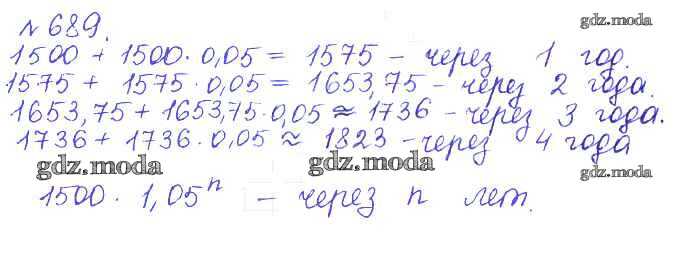 №689.
gdz.moda
1500 + 1500·0,05 = 1575 – через 1 год.
1575 + 1575·0,05 = 1653,75 – через 2 года.
1653,75 + 1653,75·0,05 ≈ 1736 – через 3 года.
1736 + 1736·0,05 ≈ 1823 – через 4 года
gdz.moda gdz.moda gdz.moda
1500 · 1,05ⁿ – через n лет.